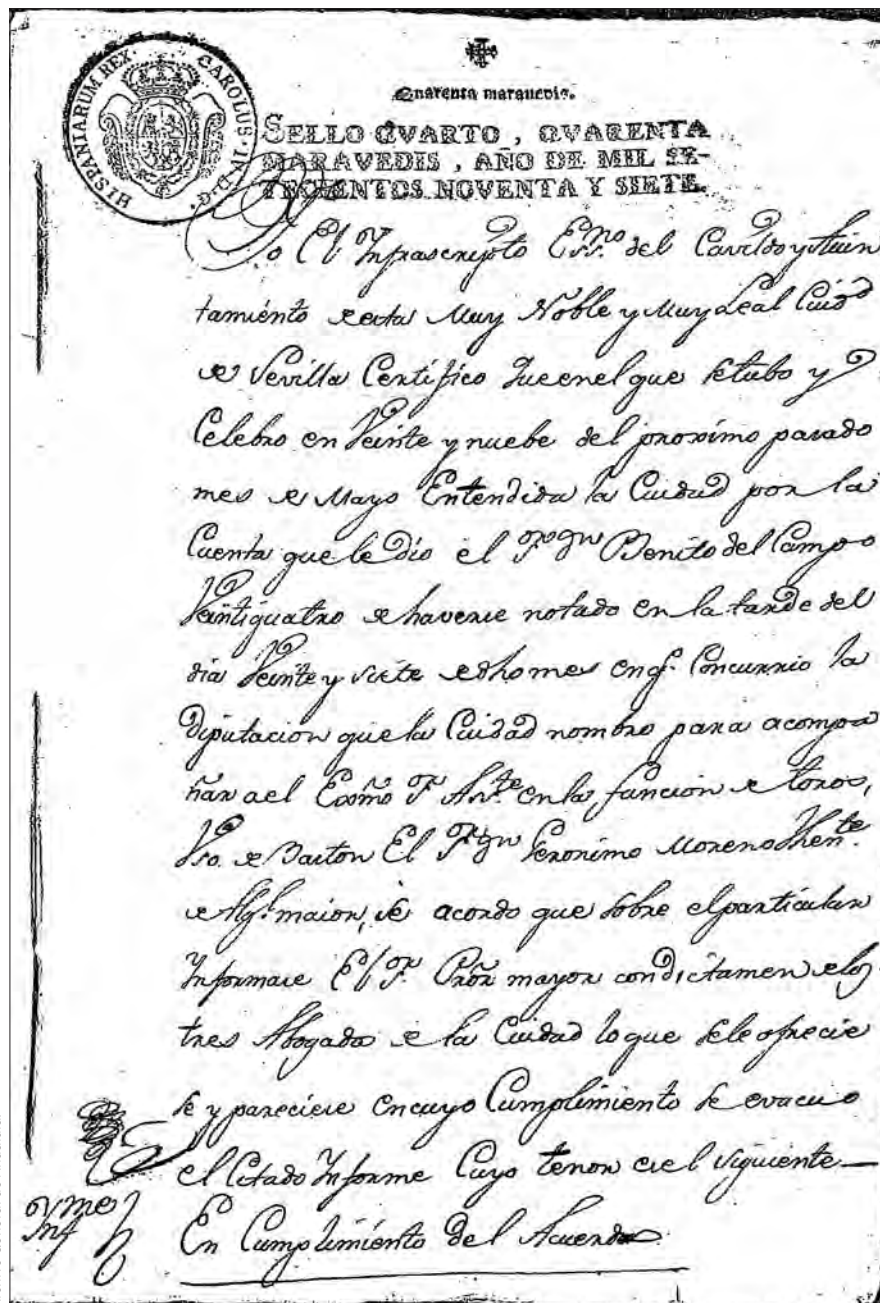 HISPANIARUM REX. CAROLUS. IV. D. G.
Quarenta maravedis.
SELLO QVARTO, QVARENTA
MARAVEDIS, AÑO DE MIL SE-
TECIENTOS NOVENTA Y SIETE.
Yo El Infrascripto Essno. del Cavildo y Aiun
tamiento de esta Muy Noble y Muy Leal Ciudd
de Sevilla Certifico Que en el que se tubo y
Celebro en Veinte y nuebe del proximo pasado
mes de Mayo Entendida la Ciudad por la
Cuenta que le dio el Sr. Dn Benito del Campo
Veintiquatro de haverse notado en la tarde del
dia Veinte y siete de dho mes en q. Concurrio la
Diputacion que la Ciudad nombro para acompa
ñar a el Exsmo Sr. Aste. en la funcion de toros,
Vso. de Baston El Sr. Dn Geronimo Moreno Thente.
de Alg.l maior, se acordo que sobre el particular
Informase El Sr. Pror. mayor con dictamen de los
tres Abogados de la Ciudad lo que se le ofrecie
se y pareciese en cuyo Cumplimiento se evacuo
el Citado Informe Cuyo tenor es el siguiente —
Ynfme
En Cumplimiento del Acuerdo